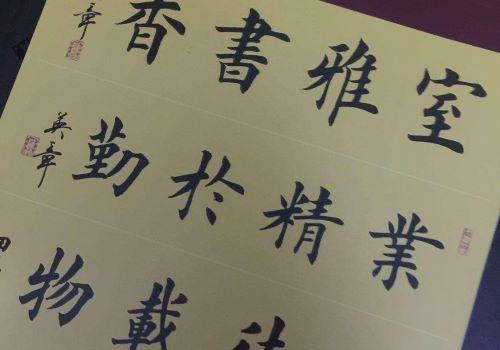 室雅書香
章
業精於勤
英章
載物